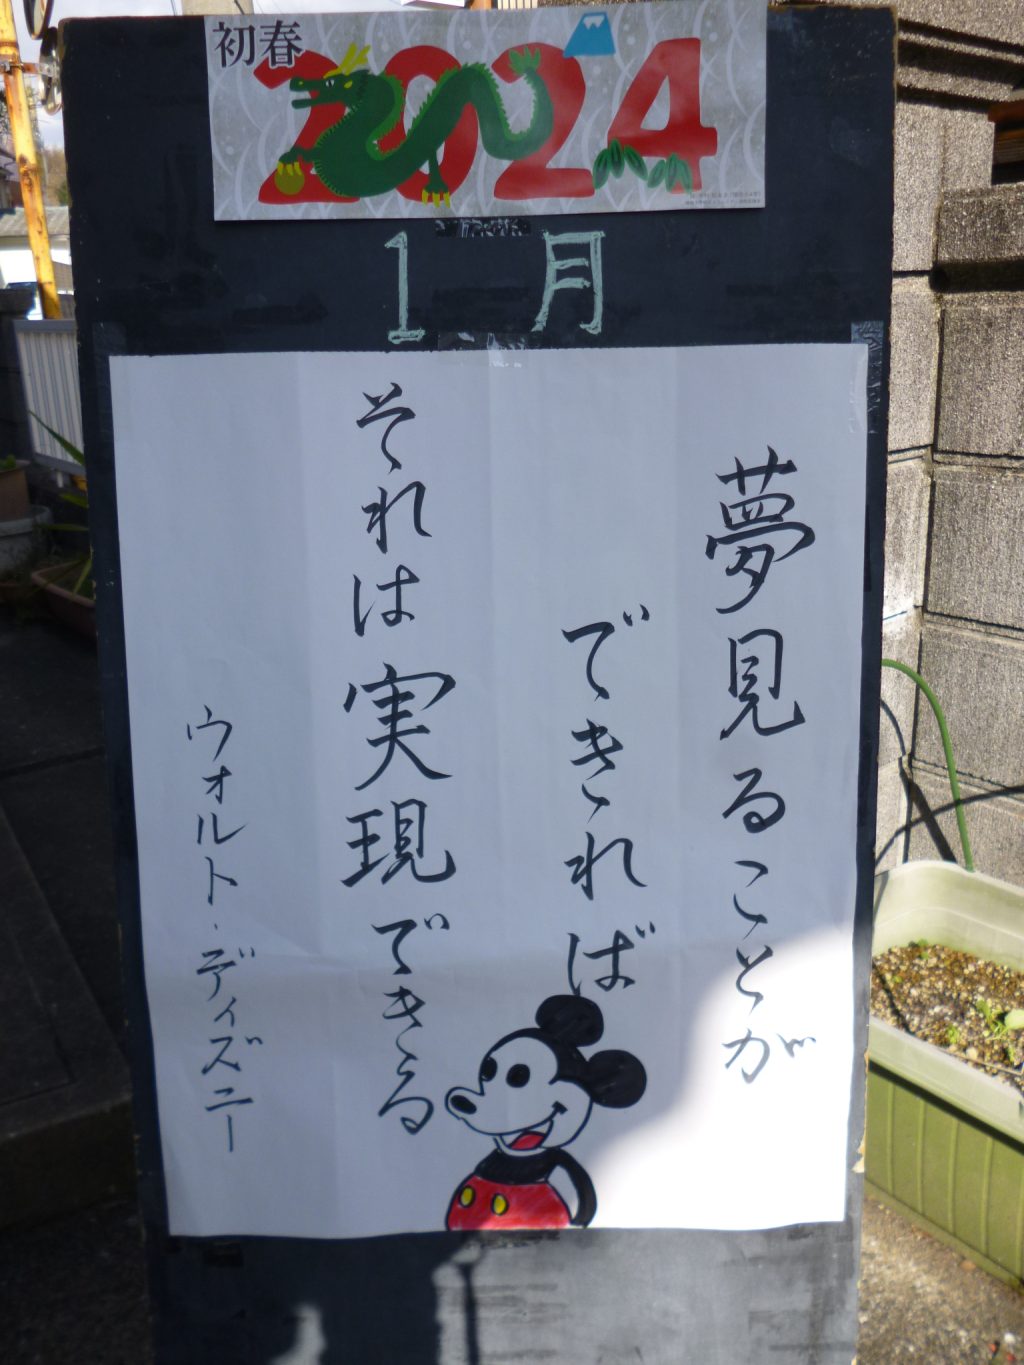 初春
2024
1月
夢見ることが
できれば
それは実現できる
ウォルト・ディズニー